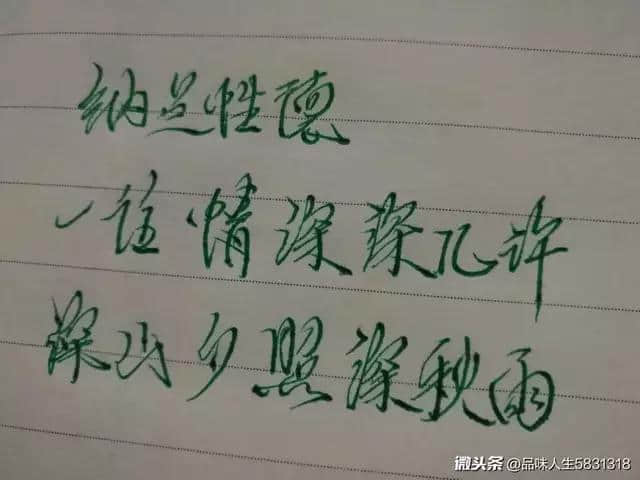 纳兰性德
一往情深深几许
深山夕照深秋雨
微头条 @品味人生5831318